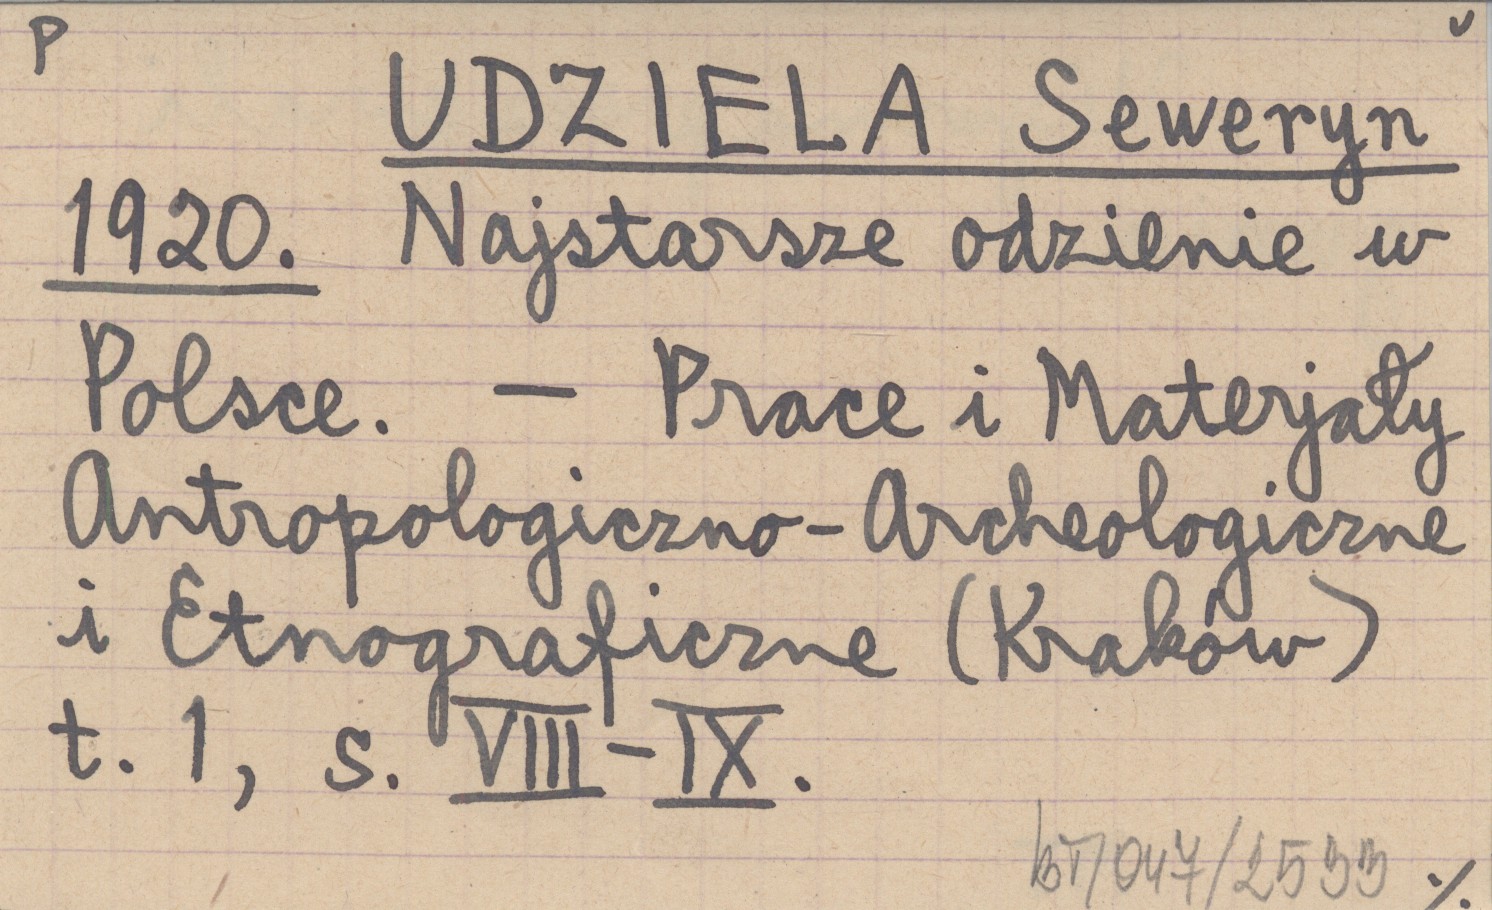 P
UDZIELA Seweryn
1920. Najstarsze odzienie w
Polsce. — Prace i Materjały
Antropologiczno-Archeologiczne
i Etnograficzne (Kraków)
t. 1, s. VIII-IX.
/047/2533 ./.